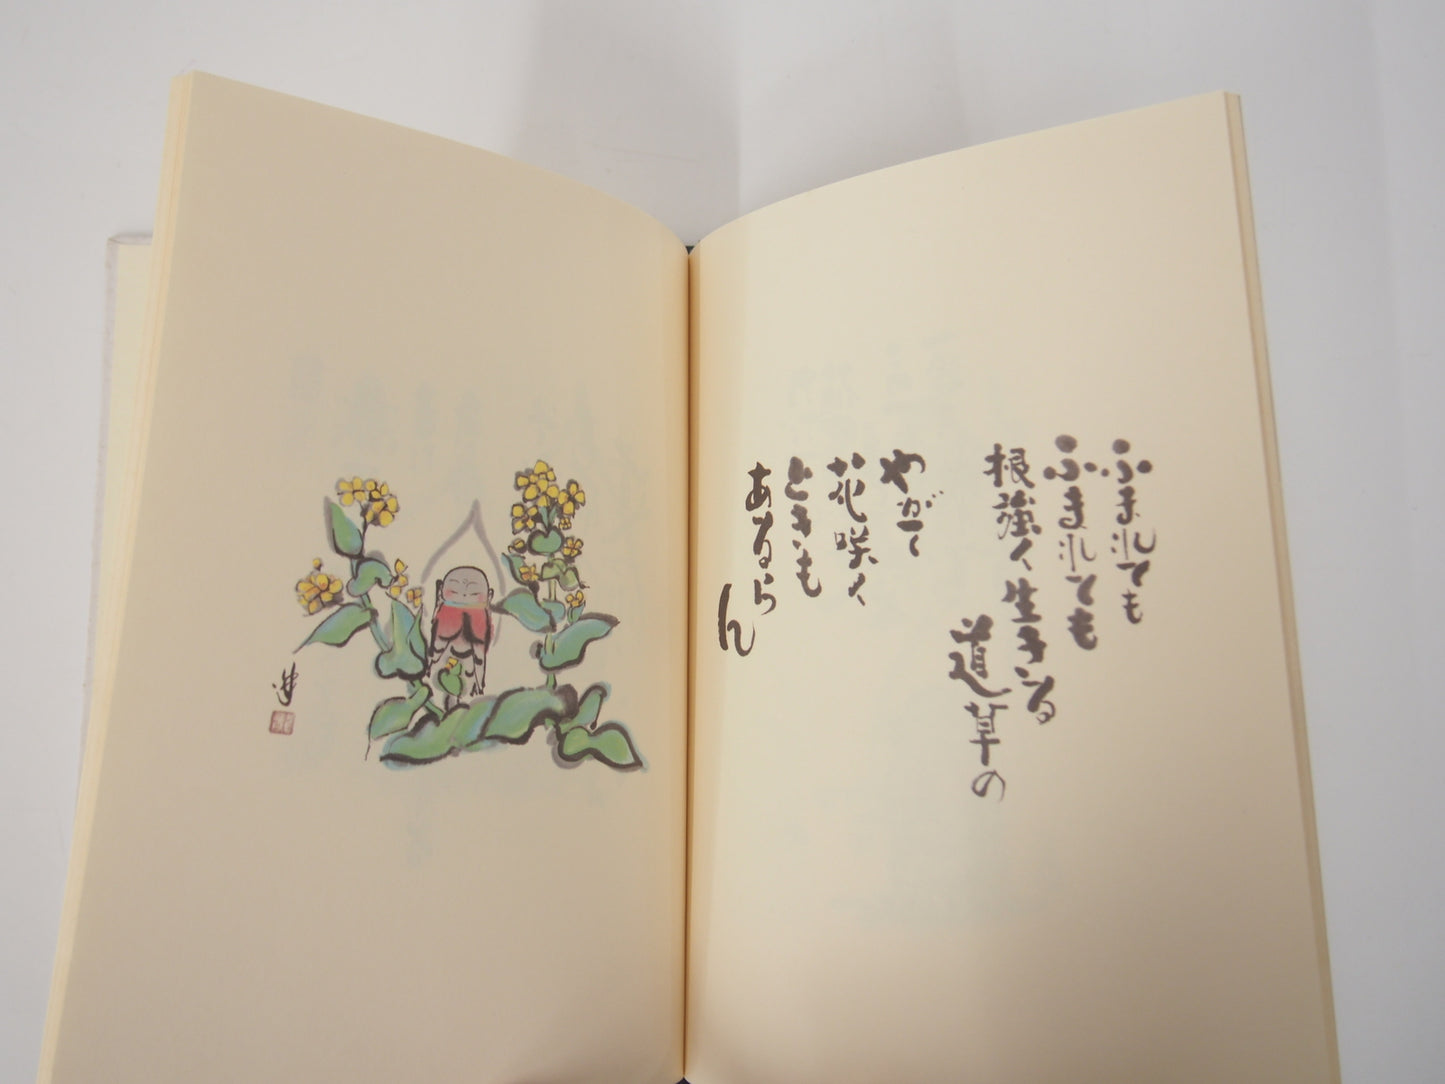 ふまれても
ふまれても
根強く生きる
道草の
やがて
花咲く
ときも
あるらん